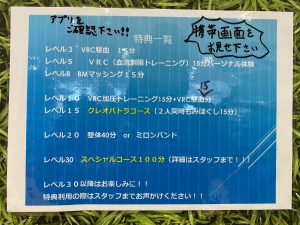 アプリを
ご確認下さい!!
携帯画面を
お見せ下さい
特典一覧
レベル3 VRC駆血 15分
レベル5 VRC（血流制限トレーニング）15分パーソナル体験
レベル8 BMマッシング15分
15
レベル10 VRC加圧トレーニング15分+VRC駆血分
レベル15 クレオパトラコース（2人同時もみほぐし15分）
レベル20 整体40分 or ミロンバンド
レベル30 スペシャルコース100分（詳細はスタッフまで！！）
レベル30以降はお楽しみに！！
特典利用の際はスタッフまでお声がけください！！